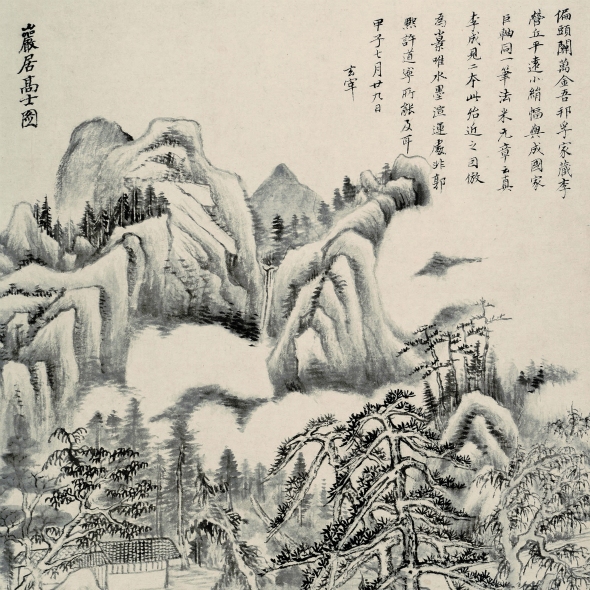 偏頭關萬金吾邦孚家藏李
營丘平遠小絹幅與成國家
巨軸同一筆法米元章云真
李成見二本此殆近之因倣
為唯水墨渲運處非郭
熙許道寧所能及耳
甲子七月廿九日
玄宰
巖居高士圖